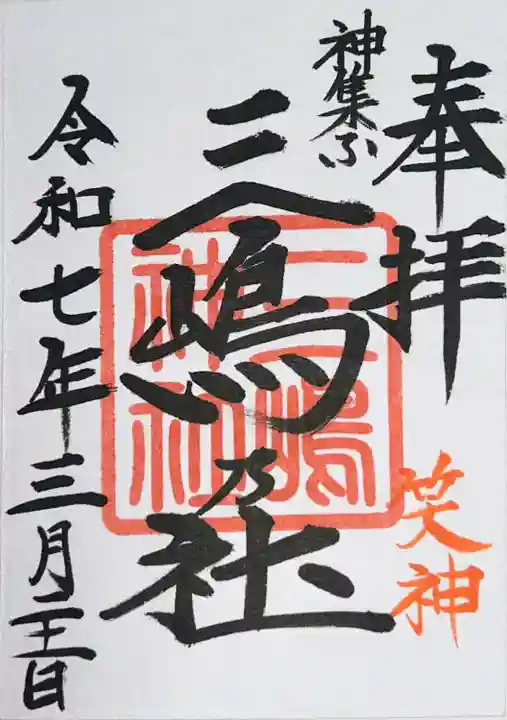 奉拝
笑神
神集ふ
三嶋乃社
三嶋神社
令和七年三月 日